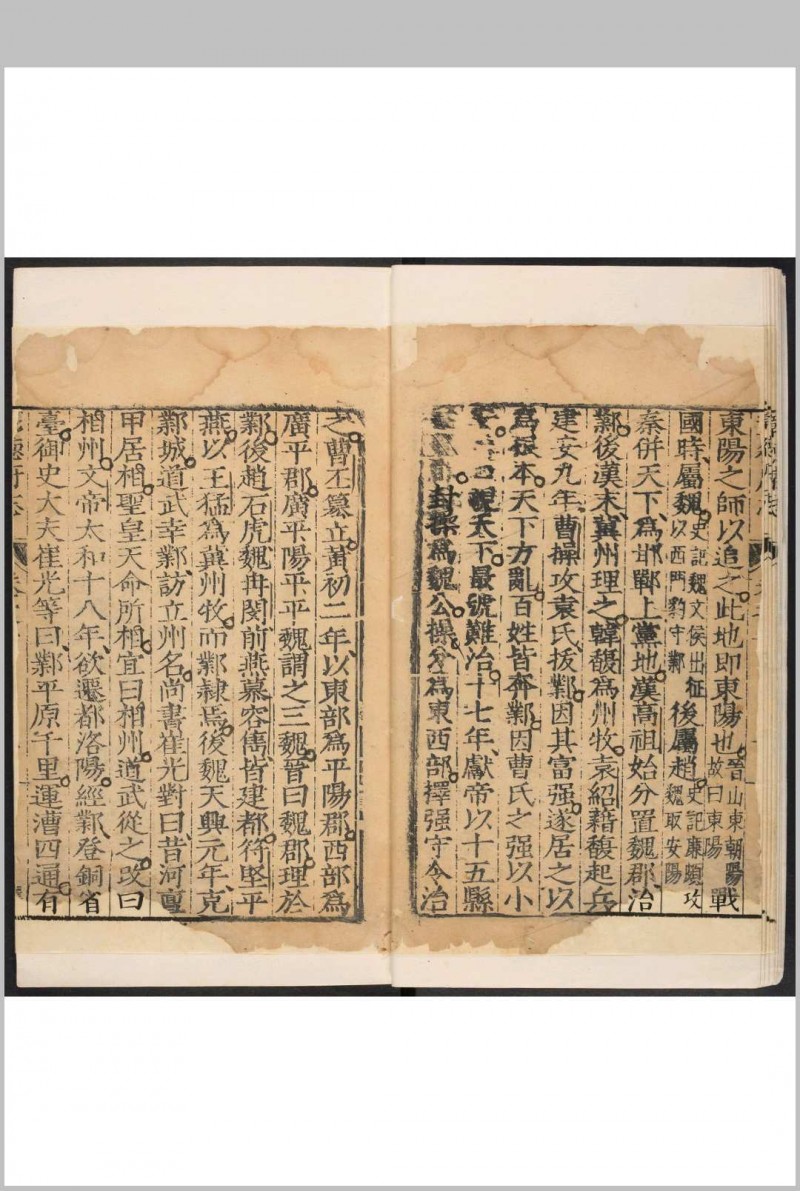 東陽之師以追之此地即東陽也晉山東朝陽故曰東陽戰
國時屬魏史記魏文侯出征以西門豹守鄴後屬趙史記廉頗攻魏取安陽
秦併天下爲邯鄲上黨地漢高祖始分置魏郡治
鄴後漢末冀州理之韓馥爲州牧袁紹藉馥起兵
建安九年曹操攻袁氏拔鄴因其富强遂居之以
爲根本天下方亂百姓皆奔鄴因曹氏之强以小
天下最號難治十七年獻帝以十五縣
封操爲魏公操分爲東西部擇强守令治
之曹丕纂立黃初二年以東部爲平陽郡西部爲
廣平郡廣平陽平平魏謂之三魏晉曰魏郡理於
鄴後趙石虎魏冉閔前燕慕容儁皆建都符堅平
燕以王猛爲冀州牧而鄴隸焉後魏天興元年克
鄴城道武幸鄴訪立州名尚書崔光對曰昔河亶
甲居相聖皇天命所相宜曰相州道武從之改曰
相州文帝太和十八年欲遷都洛陽經鄴登銅省
臺御史大夫崔光等曰鄴平原千里運漕四通有